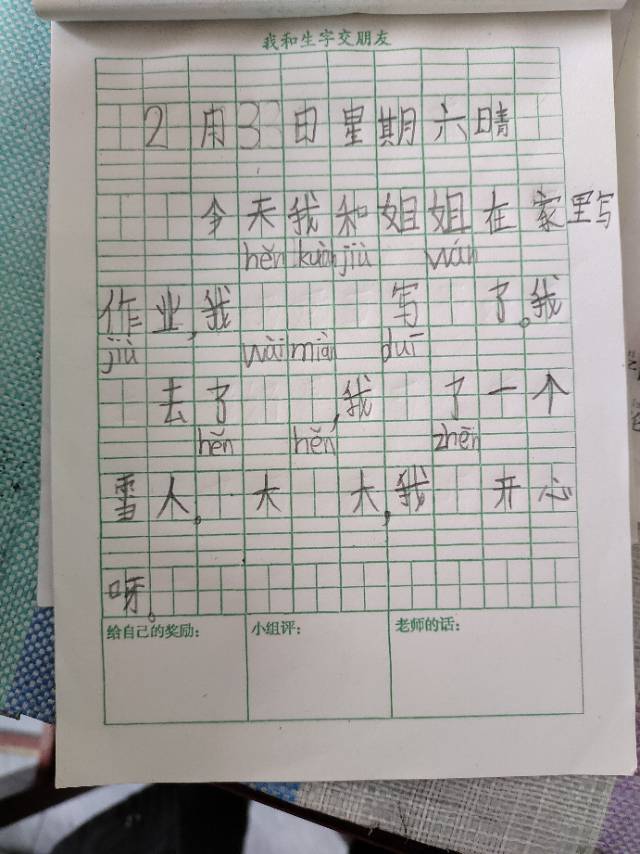 我和生字交朋友
2月33日星期六晴
今天我和姐姐在家里写
hěn kuàn jiù wán
作业,我写了。我
jiù wài miàn duī
去了,我了一个
hěn hěn zhēn
雪人,大大,我开心
呀。
给自己的奖励: 小组评: 老师的话: